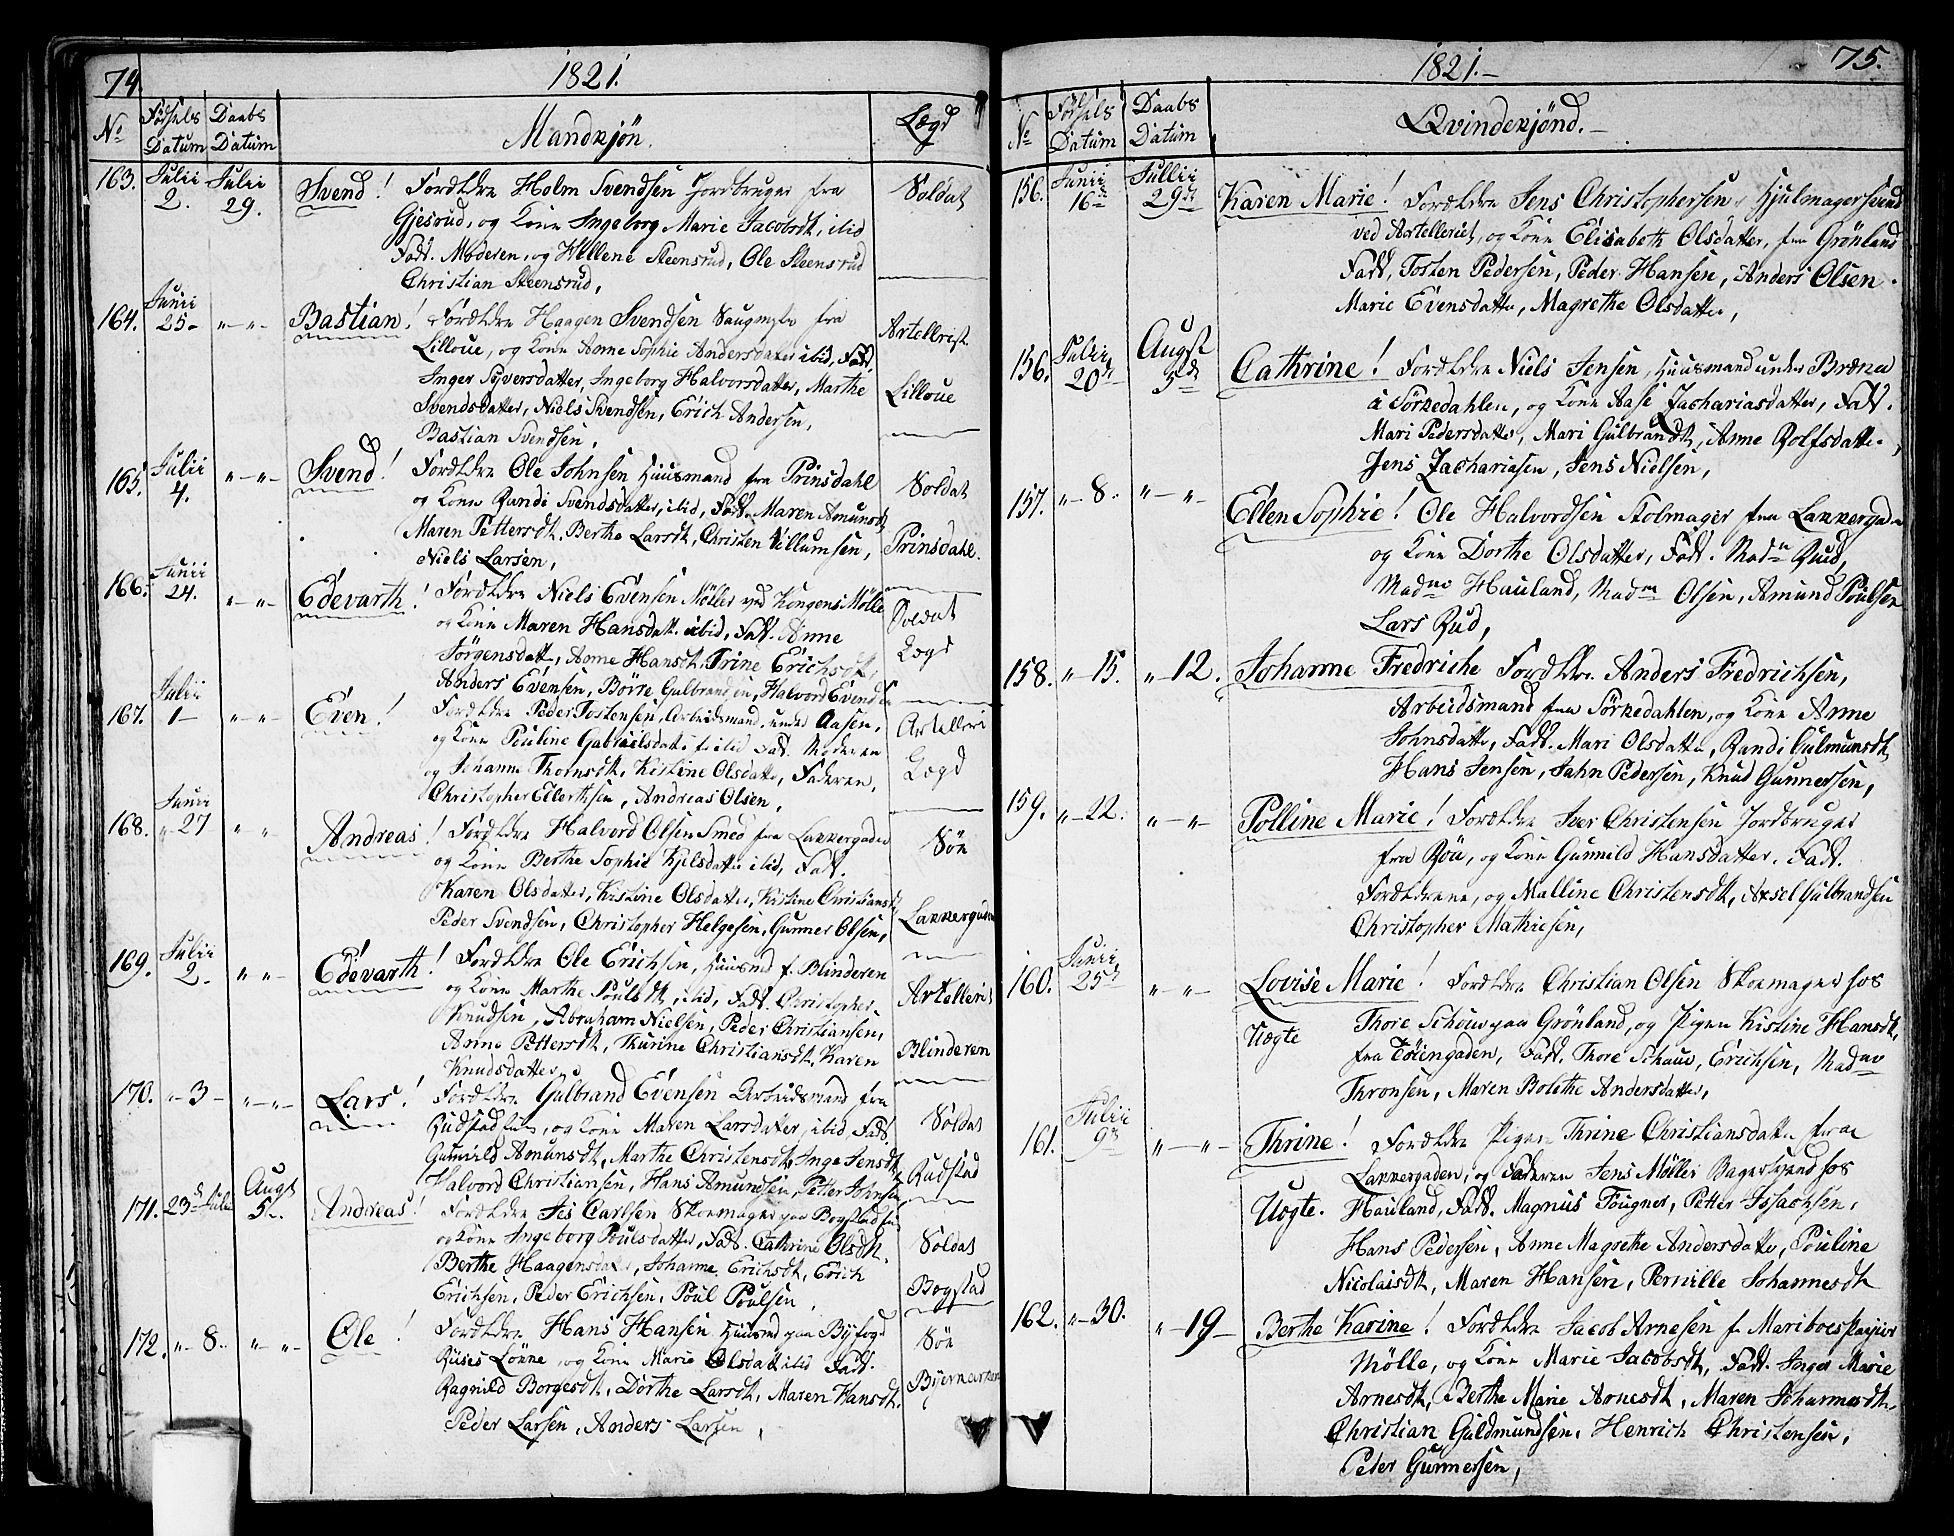 74.
1821.
No
Fødsels Datum
Daabs Datum
Mandkjøn.
Lægd
163. Julii 2. Julii 29. Svend! Forældre Holm Svendsen Jordbruger fra
Gjesrud, og Kone Ingeborg Marie Jacobsdt, ibid
Fadd. Moderen, og Hellene Steensrud, Ole Steensrud
Christian Steensrud,
Soldat
164. Junii 25 - " - " - Bastian! Forældre Haagen Svendsen Saugmester fra
Lilloue, og Kone Anne Sophie Andersdatter ibid, Fadd,
Inger Syversdatter, Ingeborg Halvorsdatter, Marthe
Svendsdatter, Niels Svendsen, Erich Andersen,
Bastian Svendsen,
Artellerist
Lilloue
165. Julii 4. " - " - Svend! Forældre Ole Johnsen Huusmand fra Prinsdahl
og Kone Randi Svendsdatter, ibid, Fadd. Maren Amundsdt,
Maren Pettersdt, Berthe Larsdt, Christen Villumsen,
Niels Larsen,
Soldat
Prinsdahl.
166. Junii 24. " - " - Edevarth! Forældre Niels Evensen Møller ved Kongens Mølle
og Kone Maren Hansdatt. ibid, Fadd. Anne
Jörgensdatt, Anne Hansdt, Trine Erichsdt,
Anders Evensen, Börre Gulbrandsen, Halvord Evendsen
Soldat
Lægd
167. Julii 1 - " - " - Even! Forældre Peder Tostensen, Arbeidsmand under Aasen,
og Kone Pouline Gabrielsdatt: ibid Fadd. Moderen
og Johanne Thornsdt, Kistine Olsdatte, Faderen,
Christopher Ellerthsen, Andreas Olsen,
Artelleri
Lægd
168. Junii " 27 " " Andreas! Forældre Halvord Olsen Smed fra Lakkergaden
og Kone Berthe Sophie Kjelsdatte ibid, Fadd.
Karen Olsdatter, Kistine Olsdatter, Kistine Christiansdt,
Peder Svendsen, Christopher Helgesen, Gunner Olsen,
Søn
Lakkergaden
169. Julii 2. " " - Edevarth! Forældre Ole Erichsen, Huusmd f. Blinderen
og Kone Marthe Poulsdt, ibid, Fadd. Christopher
Knudsen, Abraham Nielsen, Peder Christiansen,
Anne Pettersdt, Thurine Christiansdt, Karen
Knudsdatter,
Artellerist
Blinderen
170. " - 3 - " - " - Lars! Forældre Gulbrand Evensen Arbeidsmand fra
Rudstad, og Kone Maren Larsdatter, ibid, Fadd.
Gunnild Amundsdt, Marthe Christensdt, Inge Jensdt,
Halvord Christiansen, Hans Amundsen, Petter Johnsen
Soldat
Rudstad
171. 23d Julii Augst 5 - Andreas! Forældre Jes Carlsen Skoemager paa Bogstad
og Kone Ingeborg Poulsdatter, Fadd. Cathrine Olsdt.
Berthe Haagensdatter, Johanne Erichsdt, Erich
Erichsen, Peder Erichsen, Poul Poulsen,
Soldat
Bogstad
172. " - 8. " " - Ole! Forældre Hans Hansen Huusmd paa Byfogd
Ruses Lönne, og Kone Marie Olsdatt ibid Fadd.
Ragnild Borgesdt, Dorthe Larsdt, Maren Hansdt,
Peder Larsen, Anders Larsen,
Søn
75.
1821. -
No
Fødsels Datum
Daabs Datum
Qvindekjönd. -
156. Junii 16de Jullii 29de Karen Marie! Forældre Jens Christophersen, Hjulmagersvend
ved Artelleriet, og Kone Elisabeth Olsdatter, fra Grönland
Fadd, Tosten Pedersen, Peder Hansen, Anders Olsen.
Marie Evensdatte, Magrethe Olsdatte,
156. Julii 20de Augst 5de Cathrine! Forældre Niels Jensen, Huusmand under Brænna
i Sörkedahlen, og Kone Aase Zachariasdatter, Fadd.
Mari Pedersdatte, Mari Gulbrandt, Anne Rolfsdatte,
Jens Zachariasen, Jens Nielsen,
157. " - 8. " - " - Ellen Sophie! Ole Halvordsen Stolmager fra Lakkergaden
og Kone Dorthe Olsdatter, Fadd. Madm Rud,
Madme Hauland, Madm Olsen, Amund Poulsen
Lars Rud,
158. " - 15. " 12. Johanne Fredriche Forældre Anders Fredrichsen,
Arbeidsmand fra Sörkedahlen, og Kone Anne
Johnsdatte, Fadd. Mari Olsdatte, Randi Gulmundsdt,
Hans Jensen, Jahn Pedersen, Knud Gunnersen,
159. " - 22. " - " - Polline Marie! Forældre Iver Christensen Jordbruger
fra Röa, og Kone Gunnild Hansdatter, Fadd.
Forældrene, og Malline Christensdt, Axsel Gulbrandsen
Christopher Mathiesen,
160. Junii 25de " - " - Lovise Marie! Forældre Christian Olsen Skoemager hos
Uægte
Thore Schouw paa Grönland, og Pigen Kistine Hansdt,
fra Töiengaden, Fadd. Thore Schauw, Erichsen, Madme
Thronsen, Maren Bolethe Andersdatter,
161. Julii 9de " - " - Thrine! Forældre Pigen Thrine Christiansdatte fra
Lakkergaden, og Faderen Jens Möller Bagersvend hos
Uægte. Hauland, Fadd. Magnus Fougner, Petter Issachsen,
Hans Pedersen, Anne Magrethe Andersdatte, Pouline
Nicolaisdt, Maren Hansen, Pernille Johannesdt
162. " - 30. " - 19 - Berthe Karine! Forældre Jacob Arnesen f. Mariboes Papiir
Mölle, og Kone Marie Jacobsdt, Fadd. Inger Marie
Arnesdt, Berthe Marie Arnesdt, Maren Johannesdt,
Christian Guldmundsen, Henrich Christensen,
Peder Gunnersen,